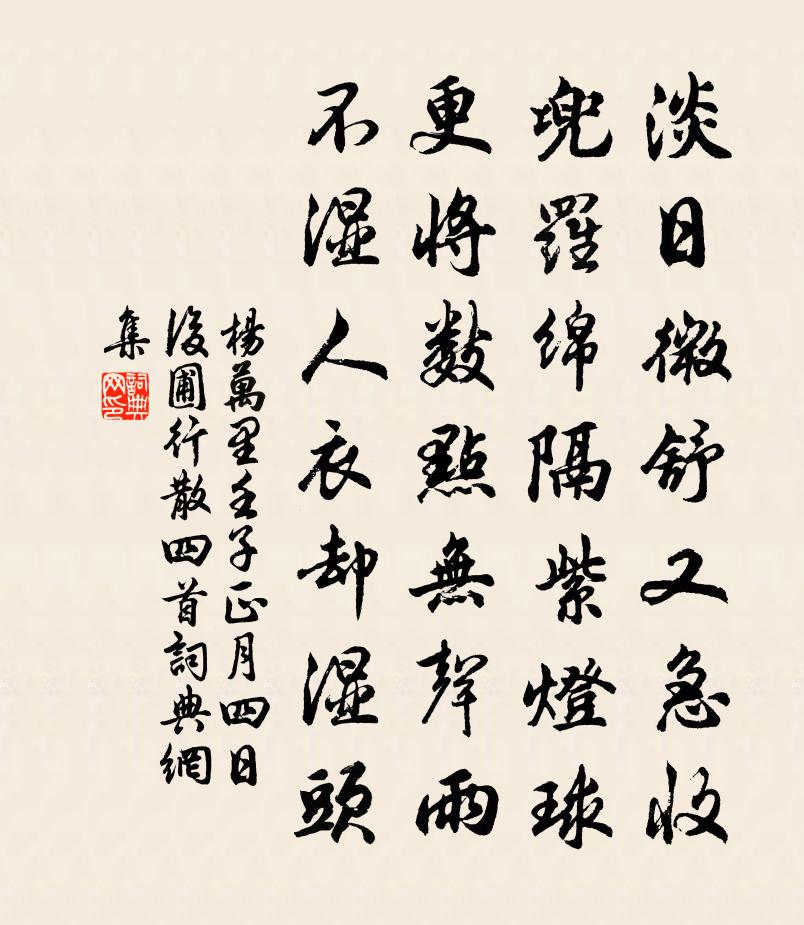 淡日微舒又急收
兜羅綿隔紫燈球
更將數點無聲雨
不濕人衣却濕頭
楊萬里壬子正月四日
後圃行散四首詞典網
集
詞典
网印